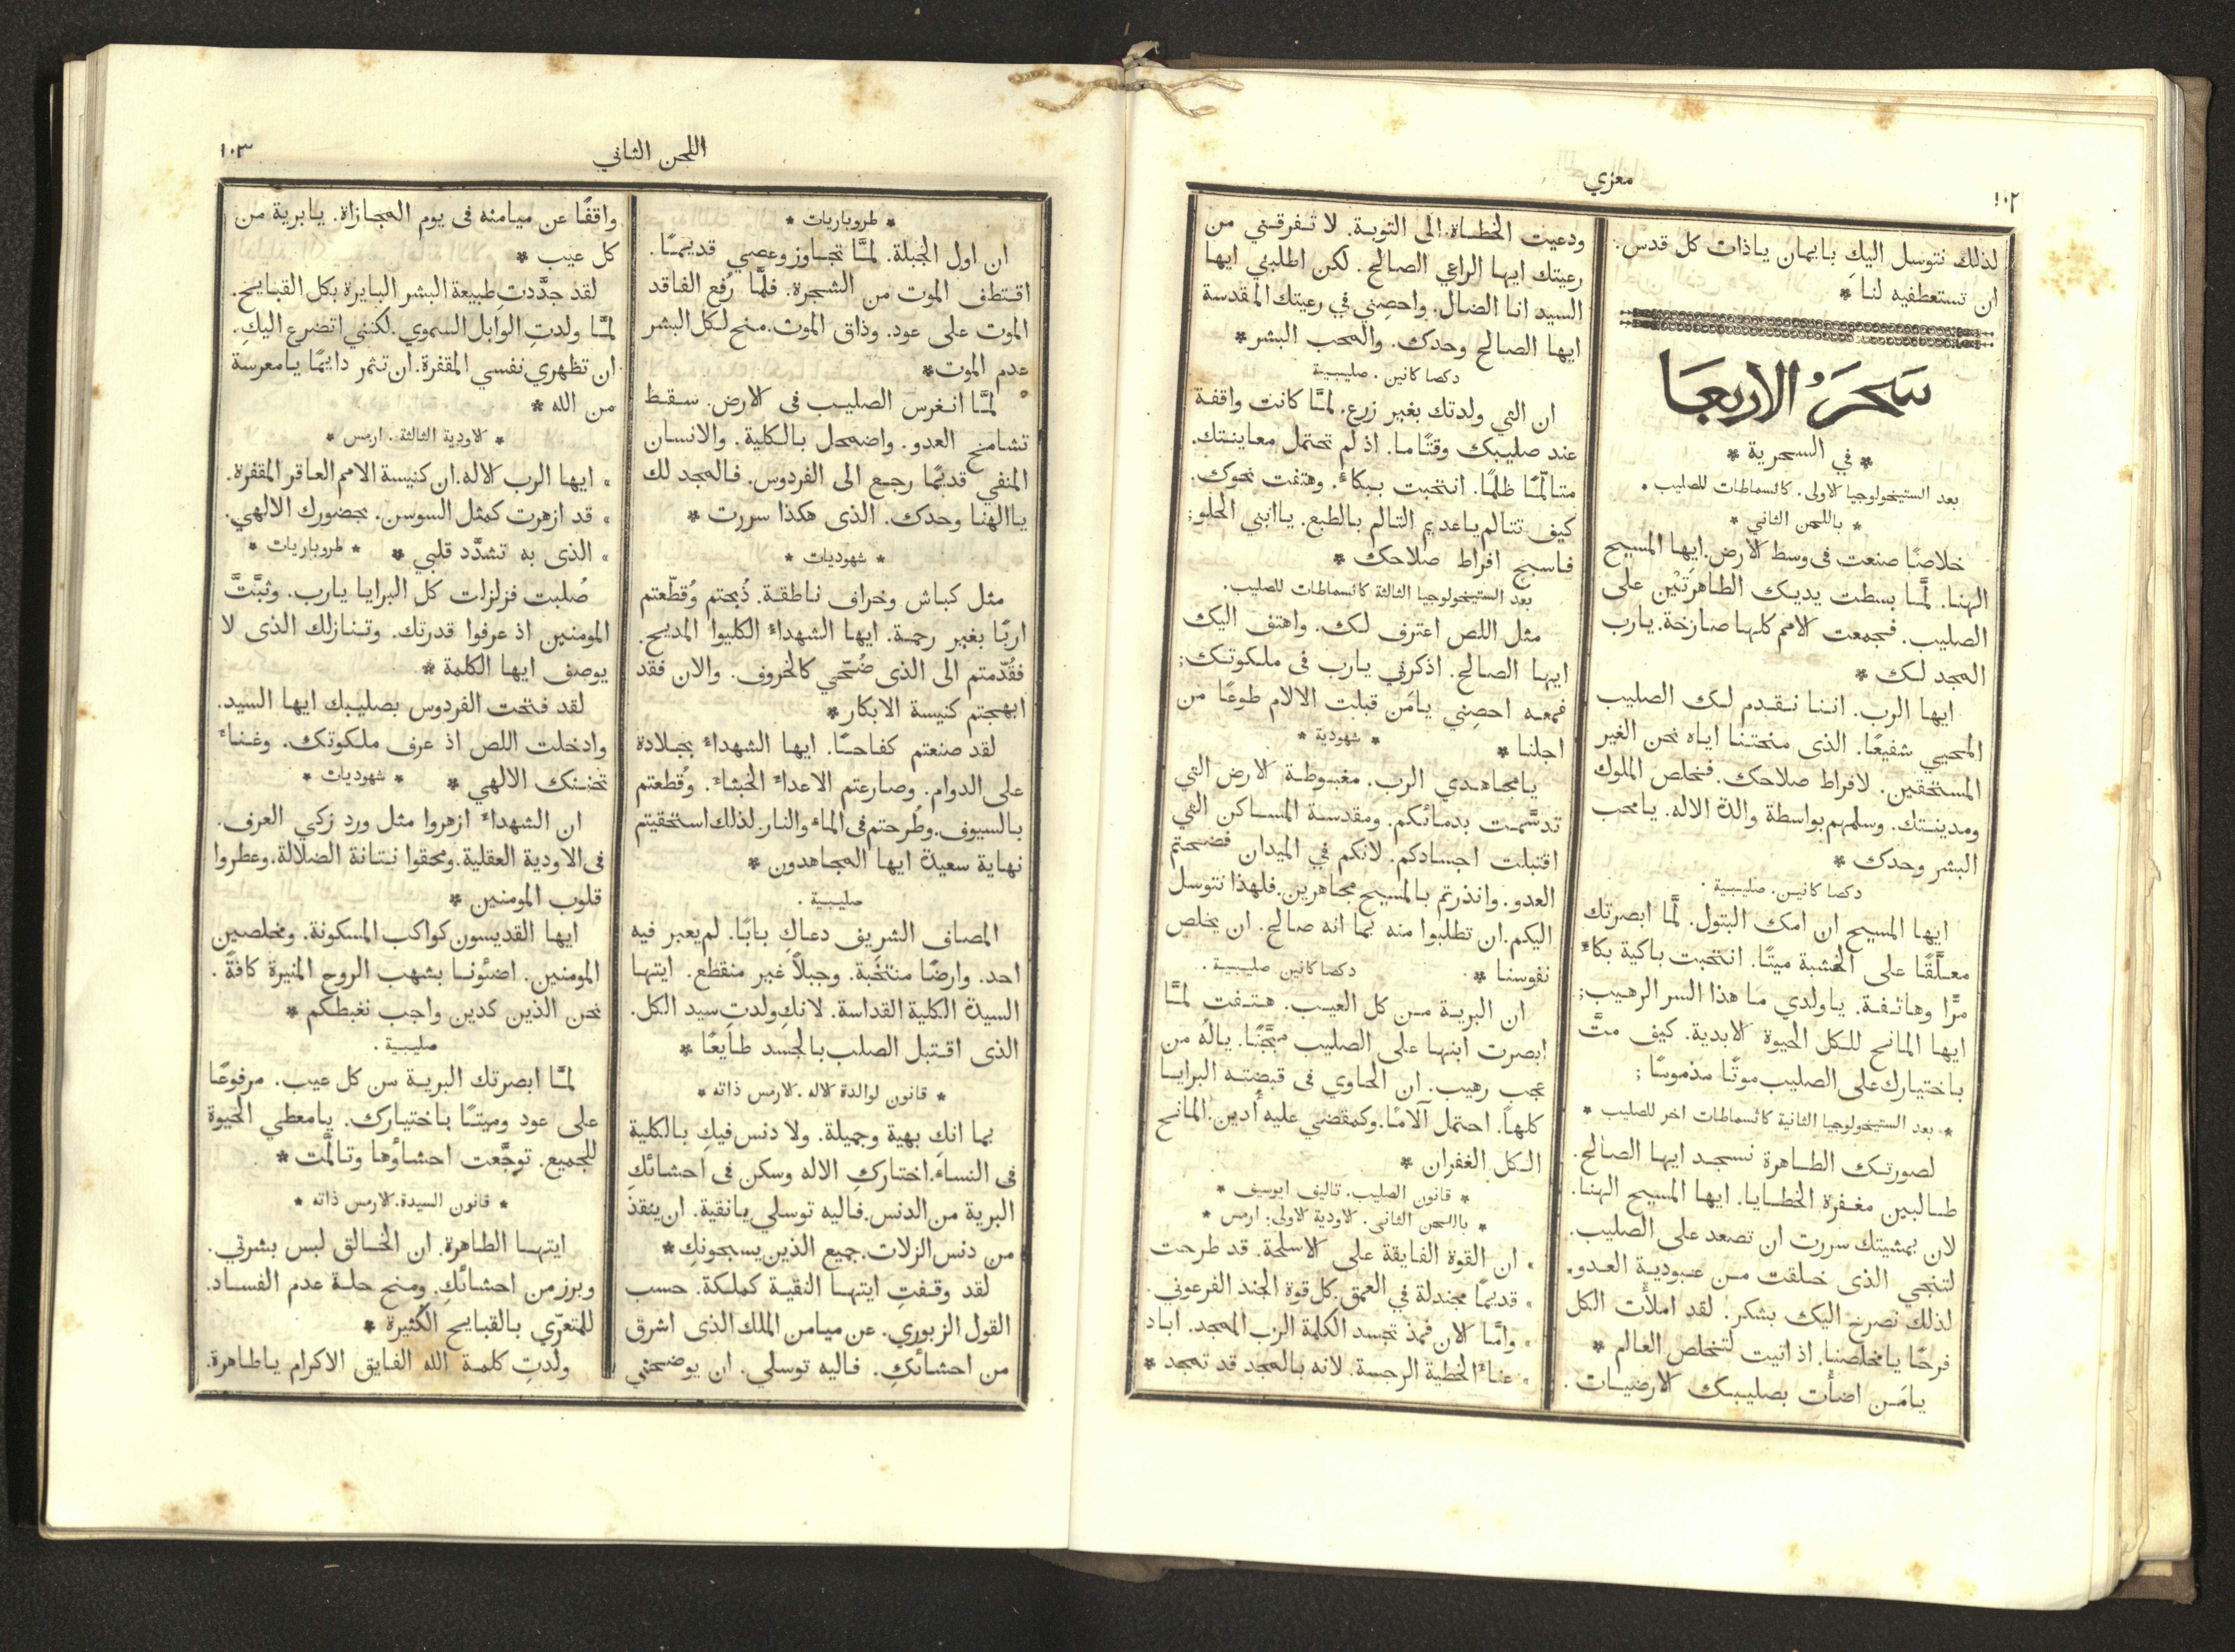 ١٠٢
معزي
لذلك نتوسل اليكِ بايمان ياذات كل قدس.
ان تستعطفيه لنا *
سَحَرُ الاربعَا
* في السحرية *
بعد الستيخولوجيا الاولى. كاثسماطات للصليب.
* باللحن الثاني *
خلاصًا صنعت فى وسط الارض. ايها المسيح
الهنا. لمَّا بسطت يديك الطاهرتَيْن على
الصليب. فجمعت الامم كلها صارخة. يارب
المجد لك *
ايها الرب. اننا نقدم لك الصليب
المحيي شفيعًا. الذى منحتنا اياه نحن الغير
المستحقين. لافراط صلاحك. فخلص الملوك
ومدينتك. وسلمهم بواسطة والدة الاله. يامحب
البشر وحدك *
دكصا كانين. صليبية.
ايها المسيح ان امك البتول. لمَّا ابصرتك
معلَّقًا على الخشبة ميتًا. انتحبت باكية بكاءً
مرًّا وهاتفة. ياولدي ما هذا السر الرهيب;
ايها المانح للكل الحيوة الابدية. كيف متَّ
باختيارك على الصليب موتًا مذموسًا;
* بعد الستيخولوجيا الثانية كاثسماطات اخر للصليب *
لصورتك الطاهرة نسجد ايها الصالح.
طالبين مغفرة الخطايا. ايها المسيح الهنا.
لان بمشيتك سررت ان تصعد على الصليب.
لتنجي الذى خلقت من عبودية العدو.
لذلك نصرخ اليك بشكر. لقد املأت الكل
فرحًا يامخلصنا. اذ اتيت لتخلص العالم *
يامَن اضأت بصليبك الارضيات.
ودعيت الخطاة الى التوبة. لا تفرقني من
رعيتك ايها الراعي الصالح. لكن اطلبني ايها
السيد انا الضال. واحصِني في رعيتك المقدسة
ايها الصالح وحدك. والمحب البشر *
دكصا كانين. صليبية
ان التي ولدتك بغير زرع. لمَّا كانت واقفة
عند صليبك وقتًا ما. اذ لم تحتمل معاينتك.
متالّمًا ظلمًا. انتحبت ببكاءٍ. وهتفت نحوك.
كيف تتالم ياعديم التالم بالطبع. ياابني الحلو;
فاسبح افراط صلاحك *
بعد الستيخولوجيا الثالثة كاثسماطات للصليب.
مثل اللص اعترف لك. واهتف اليك
ايها الصالح. اذكرني يارب فى ملكوتك;
فمعه احصِني يامَن قبلت الالام طوعًا من
اجلنا * * شهودية *
يامجاهدي الرب. مغبوطة الارض التي
تدسَّمت بدمائكم. ومقدسة المساكن التي
اقتبلت اجسادكم. لانكم في الميدان فضحتم
العدو. وانذرتم بالمسيح مجاهرين. فلهذا نتوسل
اليكم. ان تطلبوا منه بما انه صالح. ان يخلص
نفوسنا * دكصا كانين صليبية.
ان البرية من كل العيب. هتفت لمَّا
ابصرت ابنها على الصليب مبجَّنًا. يالَه من
عجب رهيب. ان الحاوي فى قبضته البرايا
كلها. احتمل آلامًا. وكمقضي عليه أُدين. المانح
الكل الغفران *
* قانون الصليب. تاليف ايوسيف *
* باللحن الثاني. الاودية الاولى: ارمس *
» ان القوة الفايقة على الاسلحة. قد طرحت
» قديمًا مجندلة في العمق. كل قوة الجند الفرعوني.
» وامَّا الان فمذ تجسد الكلمة الرب الممجد. اباد
» عناءَ الخطية الرجسة. لانه بالمجد قد تمجد *
اللحن الثاني
١٠٣
* طروباريات *
ان اول الجبلة. لمَّا تجاوز وعصي قديمًا.
اقتطف الموت من الشجرة. فلمَّا رُفع الفاقد
الموت على عود. وذاق الموت. منح لكل البشر
عدم الموت *
لمَّا انغرس الصليب فى الارض. سقط
تشامخ العدو. واضمحل بالكلية. والانسان
المنفي قديمًا رجع الى الفردوس. فالمجد لك
ياالهنا وحدك. الذى هكذا سررت *
* شهوديات *
مثل كباش وخراف ناطقة. ذُبحتم وُقطّعتم
اربًا بغير رحمة. ايها الشهداءُ الكليوا المديح.
فقُدّمتم الى الذى ضُحّي كالخروف. والان فقد
ابهجتم كنيسة الابكار *
لقد صنعتم كفاحًا. ايها الشهداءُ بجلادة
على الدوام. وصارعتم الاعداءَ الخبثاءَ. وُقطعتم
بالسيوف. وطُرحتم فى الماءِ والنار لذلك استحقيتم
نهاية سعيدة ايها المجاهدون *
صليبية.
المصاف الشريف دعاكِ بابًا. لم يعبر فيه
احد. وارضًا منتخبة. وجبلاً غير منقطع. ايتها
السيدة الكلية القداسة. لانكِ ولدتِ سيد الكل.
الذى اقتبل الصلب بالجسد طايعًا *
* قانون لوالدة الاله. الارمس ذاته *
بما انكِ بهية وجميلة. ولا دنس فيكِ بالكلية
فى النساءِ. اختاركِ الاله وسكن فى احشائكِ
البرية من الدنس. فاليه توسلي يانقية. ان ينقذ
من دنس الزلات. جميع الذين يسبحونكِ *
لقد وقفتِ ايتها النقية كملكة. حسب
القول الزبوري. عن ميامن الملك الذى اشرق
من احشائكِ. فاليه توسلي. ان يوضحني
واقفًا عن ميامنه فى يوم المجازاة. يابرية من
كل عيب *
لقد جدَّدتِ طبيعة البشر البايرة بكل القبايح.
لمَّا ولدتِ الوابل السموي. لكنني اتضرع اليكِ.
ان تظهري نفسي المقفرة. ان تثمر دايمًا يامعرسة
من الله *
* الاودية الثالثة. ارمس *
» ايها الرب الاله. ان كنيسة الامم العاقر المقفرة.
» قد ازهرت كمثل السوسن. بحضورك الالهي.
» الذى به تشدَّد قلبي * * طروباريات *
صُلبت فزلزلت كل البرايا يارب. وثبَّتَّ
المومنين اذ عرفوا قدرتك. وتنازلك الذى لا
يوصف ايها الكلمة *
لقد فتحت الفردوس بصليبك ايها السيد.
وادخلت اللص اذ عرف ملكوتك. وغناءَ
تحننك الالهي * * شهوديات *
ان الشهداءَ ازهروا مثل ورد زكي العرف.
فى الاودية العقلية. ومحقوا نتانة الضلالة. وعطروا
قلوب المومنين *
ايها القديسون كواكب المسكونة. ومخلصين
المومنين. اضئونا بشهب الروح المنيرة كافةً.
نحن الذين كدين واجب نغبطكم *
صليبية.
لمَّا ابصرتك البرية من كل عيب. مرفوعًا
على عود وميتًا باختيارك. يامعطي الحيوة
للجميع. توجَّعت احشاؤها وتالَّمت *
* قانون السيدة. الارمس ذاته *
ايتها الطاهرة. ان الخالق لبس بشرتي.
وبرز من احشائكِ. ومنح حلة عدم الفساد.
للمتعرّي بالقبايح الكثيرة *
ولدتِ كلمة الله الفايق الاكرام ياطاهرة.